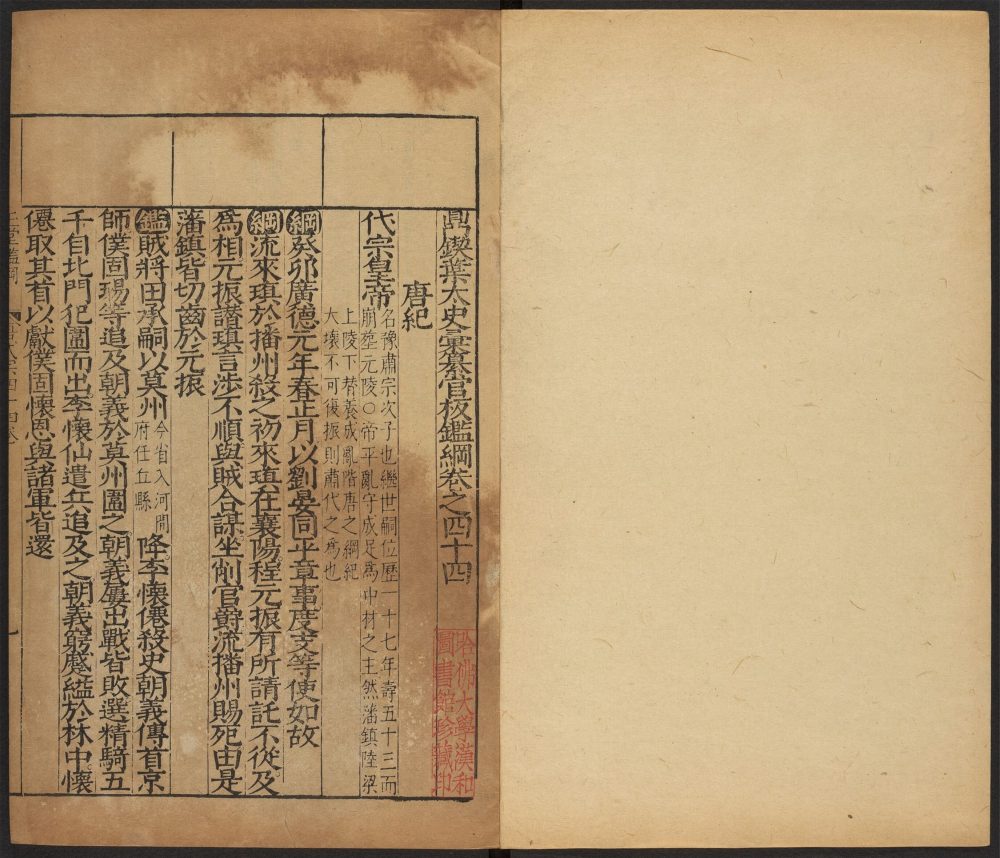 鼎鍥葉太史彙纂官板鑑綱卷之四十四
哈佛大學漢和
圖書館珍藏印
唐紀
代宗皇帝
名豫肅宗次子也繼世嗣位歷一十七年壽五十三而
崩葬元陵○帝平亂守成足爲中材之主然藩鎮陸梁
上陵下替養成亂階唐之綱紀
大壞不可復振則肅代之爲也
綱癸卯廣德元年春正月以劉晏同平章事度支等使如故
綱流來瑱於播州殺之初來瑱在襄陽程元振有所請託不從及
爲相元振譖瑱言涉不順與賊合謀坐削官爵流播州賜死由是
藩鎮皆切齒於元振
鑑賊將田承嗣以莫州
今省入河間
府任丘縣
降李懷僊殺史朝義傳首京
師僕固瑒等追及朝義於莫州圍之朝義屢出戰皆敗選精騎五
千自北門犯圍而出李懷仙遣兵追及之朝義窮蹙縊於林中懷
僊取其首以獻僕固懷恩與諸軍皆還